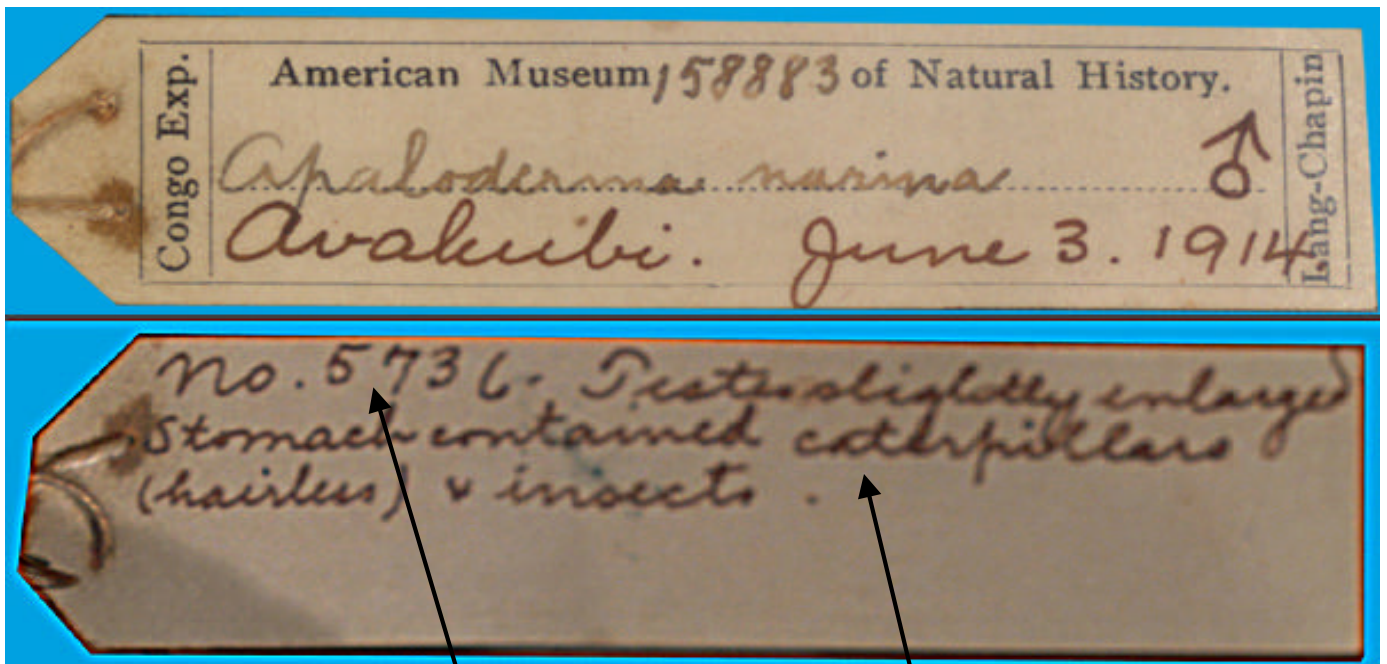 Congo Exp.
American Museum 158883 of Natural History.
Apaloderma narina ♂
Avakubi. June 3. 1914
Lang-Chapin
No. 5736. Testes slightly enlarged
Stomach contained caterpillars
(hairless) & insects.